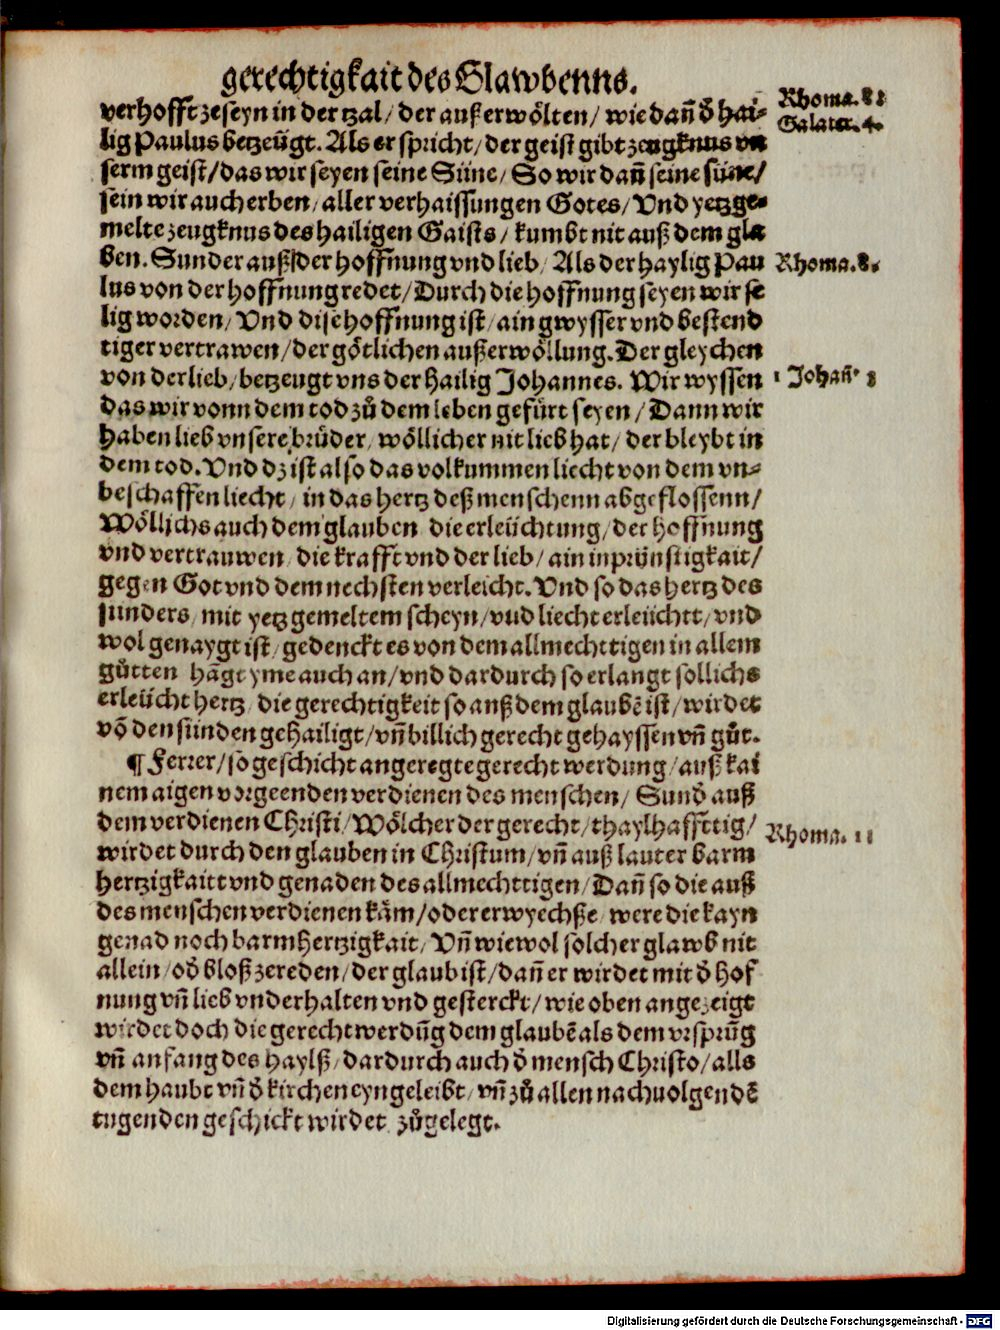 gerechtigkait des Glawbenns.
verhofft zeseyn in der tzal / der auß erwoͤlten / wie dañ d̕ hai-
Rhoma. 8 :
lig Paulus betzeügt. Als er spricht / der geist gibt zeugknus vn
Galater. 4.
serm geist / das wir seyen seine Süne / So wir dañ seine süne /
sein wir auch erben / aller verhaissungen Gotes / Vnd yetzge-
melte zeugknus des hailigen Gaists / kumbt nit auß dem gla
ben. Sunder auß der hoffnung vnd lieb / Als der haylig Pau
Rhoma. 8.
lus von der hoffnung redet / Durch die hoffnung seyen wir se
lig worden / Vnd dise hoffnung ist / ain gwysser vnd bestend
tiger vertrawen / der goͤtlichen außerwoͤllung. Der gleychen
von der lieb / betzeugt vns der hailig Johannes. Wir wyssen
1 Johañ 3
das wir vonn dem tod zuͦ dem leben gefürt seyen / Dann wir
haben lieb vnsere bruͤder / woͤllicher nit lieb hat / der bleybt in
dem tod. Vnd dz ist also das volkummen liecht von dem vn-
beschaffen liecht / in das hertz deß menschenn abgeflossenn /
Woͤllichs auch dem glauben die erleüchtung / der hoffnung
vnd vertrauwen die krafft vnd der lieb / ain inprünstigkait /
gegen Got vnd dem nechsten verleicht. Vnd so das hertz des
sunders / mit yetz gemeltem scheyn / vnd liecht erleüchtt / vnd
wol genaygt ist / gedenckt es von dem allmechttigen in allem
guͤtten hãgt yme auch an / vnd dardurch so erlangt sollichs
erleücht hertz / die gerechtigkeit so auß dem glaubẽ ist / wirdet
võ den sünden gehailigt / vñ billich gerecht gehayssen vñ guͦt.
¶ Ferrer / so geschicht angeregte gerecht werdung / auß kai
nem aigen vorgeenden verdienen des menschen / Sund̕ auß
dem verdienen Christi / Woͤlcher der gerecht / thaylhaffttig /
Rhoma. 11
wirdet durch den glauben in Christum / vñ auß lauter barm
hertzigkaitt vnd genaden des allmechttigen / Dañ so die auß
des menschen verdienen kaͤm / oder erwyechße / were die kayn
genad noch barmhertzigkait / Vñ wiewol solcher glawb nit
allein / od̕ bloß zereden / der glaub ist / dañ er wirdet mit d̕ hof
nung vñ lieb vnderhalten vnd gesterckt / wie oben angezeigt
wirdet doch die gerechtwerdũg dem glaubẽ als dem vrsprũg
vñ anfang des haylß / dardurch auch d̕ mensch Christo / alls
dem haubt vñ d̕ kirchen eyngeleibt / vñ zuͦ allen nachuolgendẽ
tugenden geschickt wirdet zuͦgelegt.
Digitalisierung gefördert durch die Deutsche Forschungsgemeinschaft - DFG